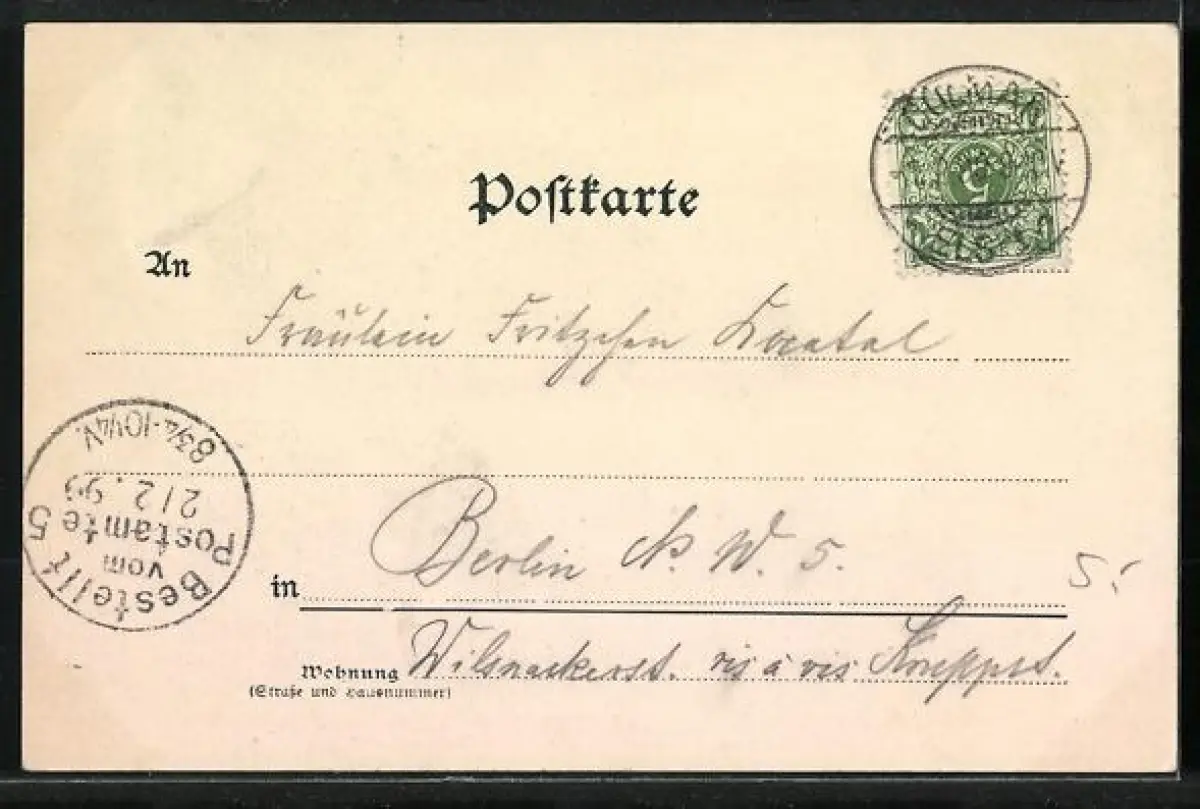 Postkarte
COLMAR
ELS
5
An
Fräulein Fritzchen
8¾-10¼V.
2/2.99
Postamte 5
vom
Bestellt
in Berlin N. W. 5.
5.
Wohnung Wilsnackerst. vis à vis
(Straße und Hausnummer)